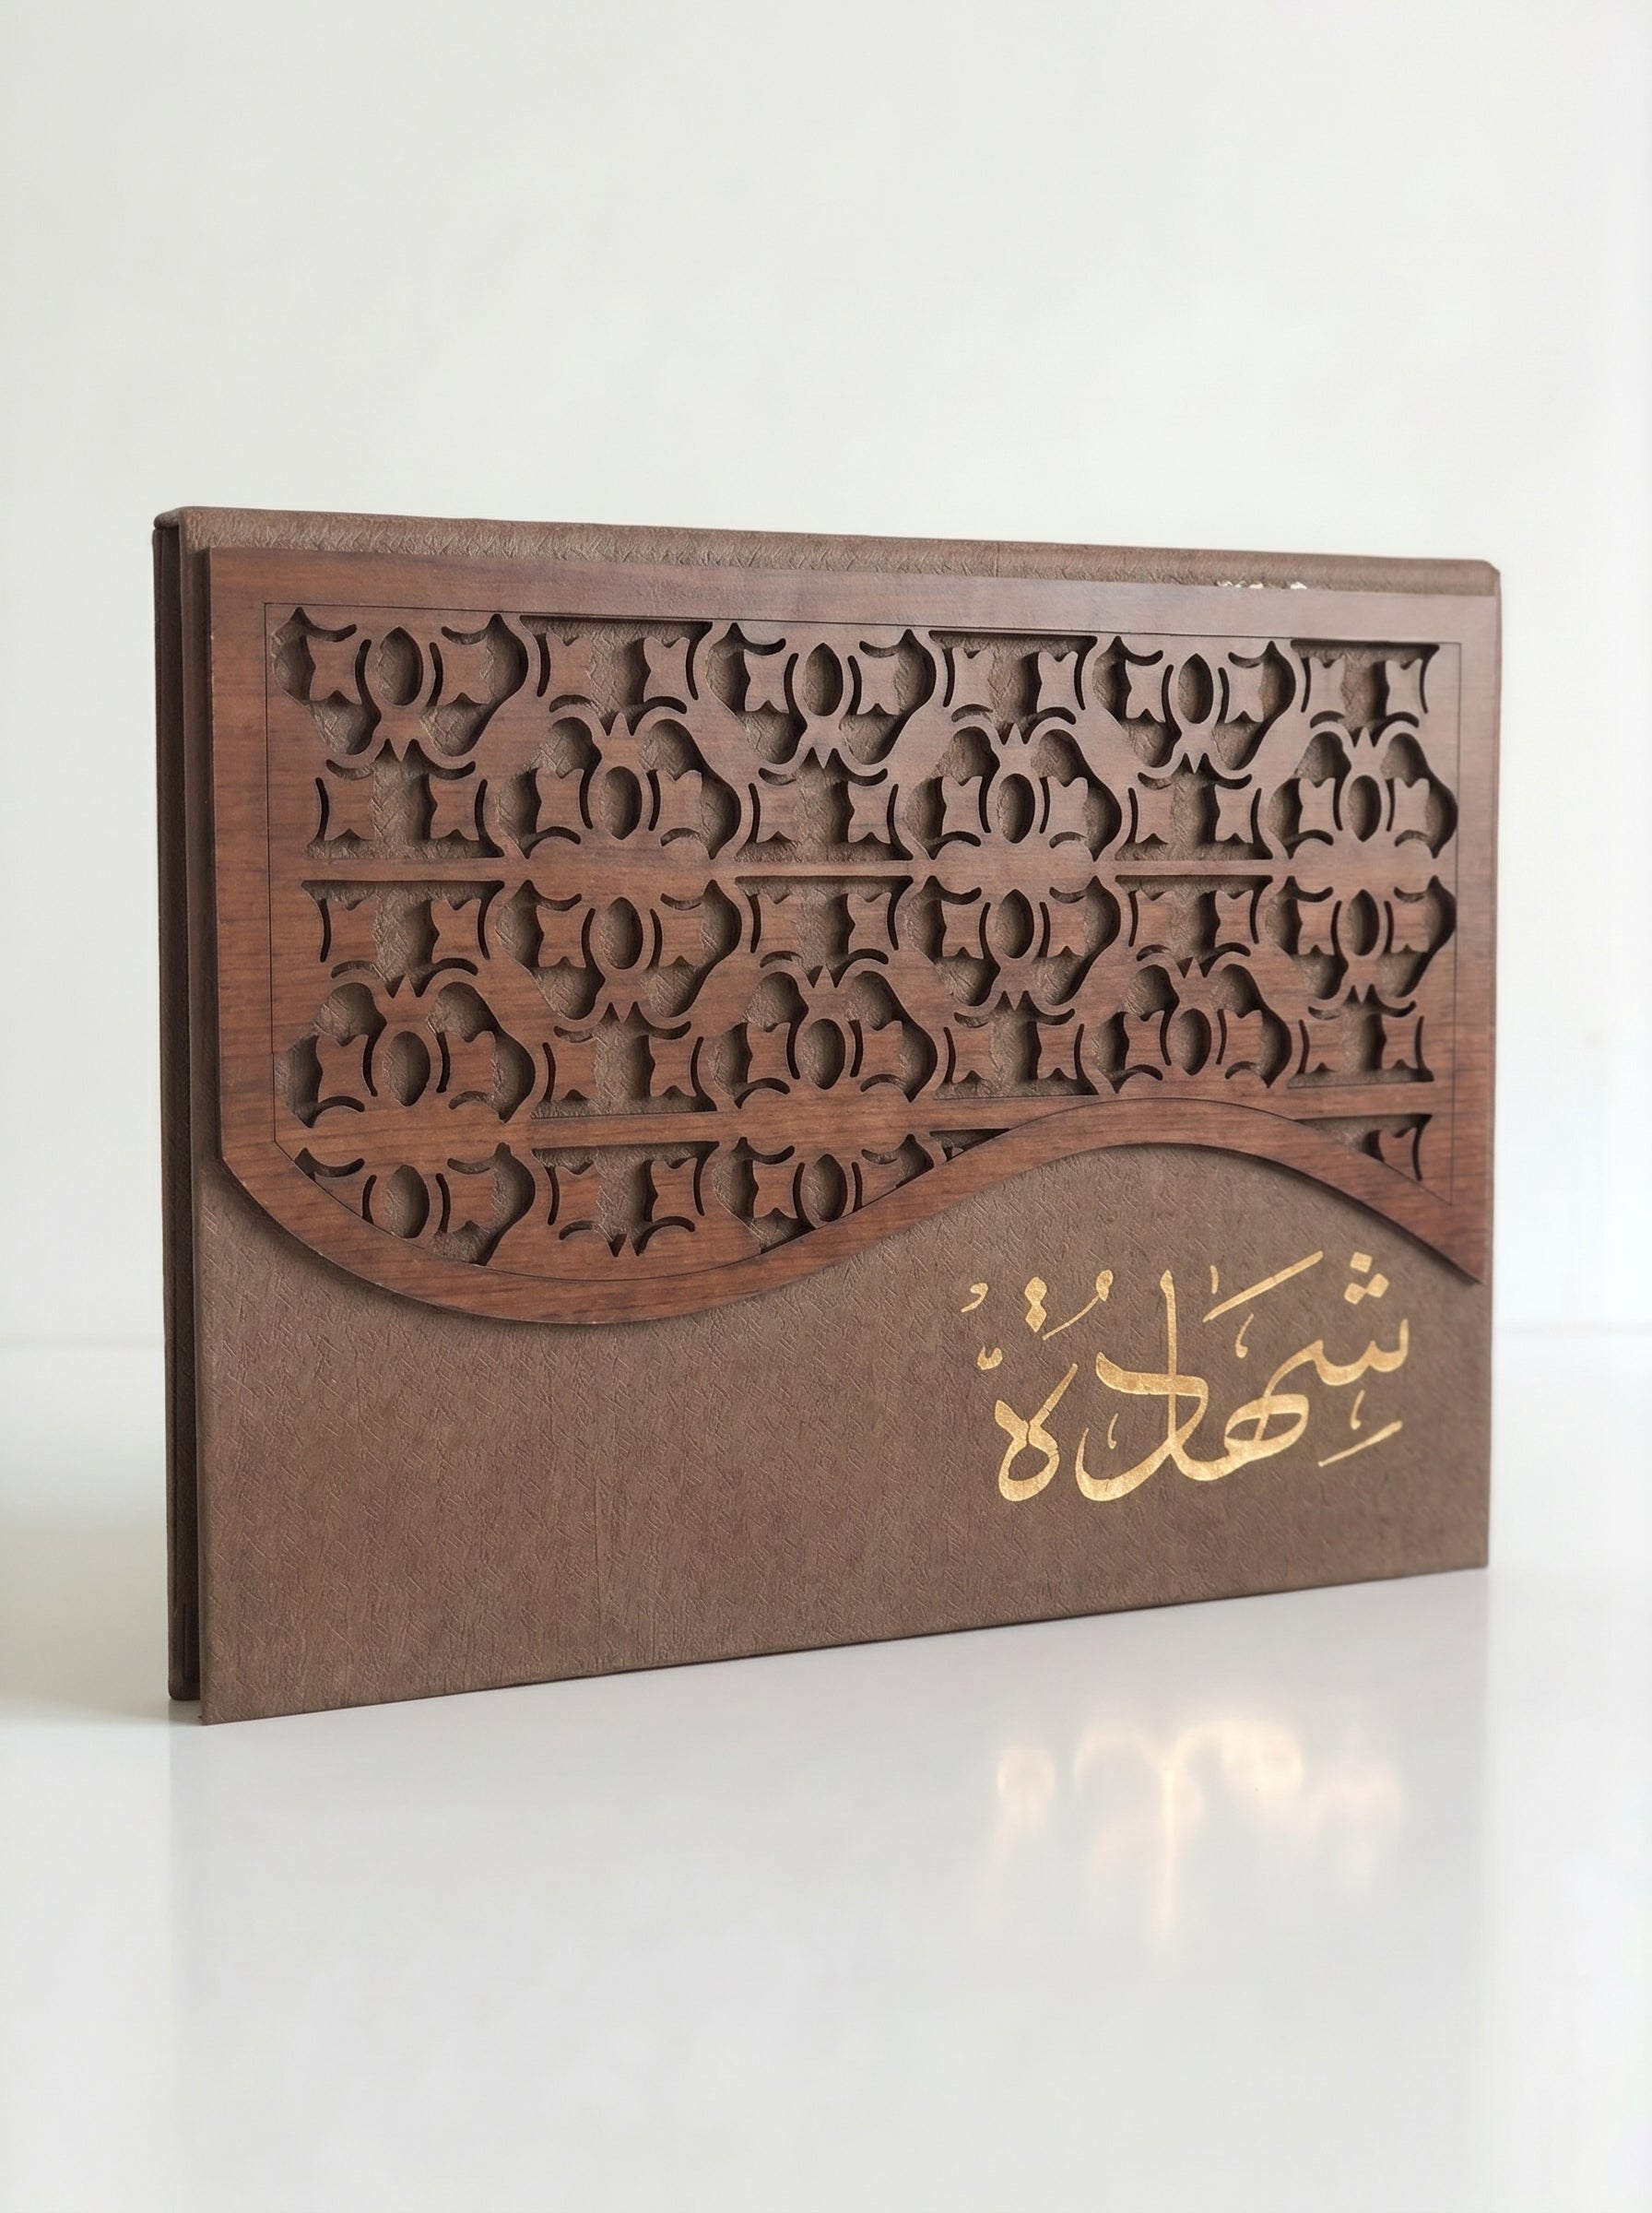 شِهَادَةٌ